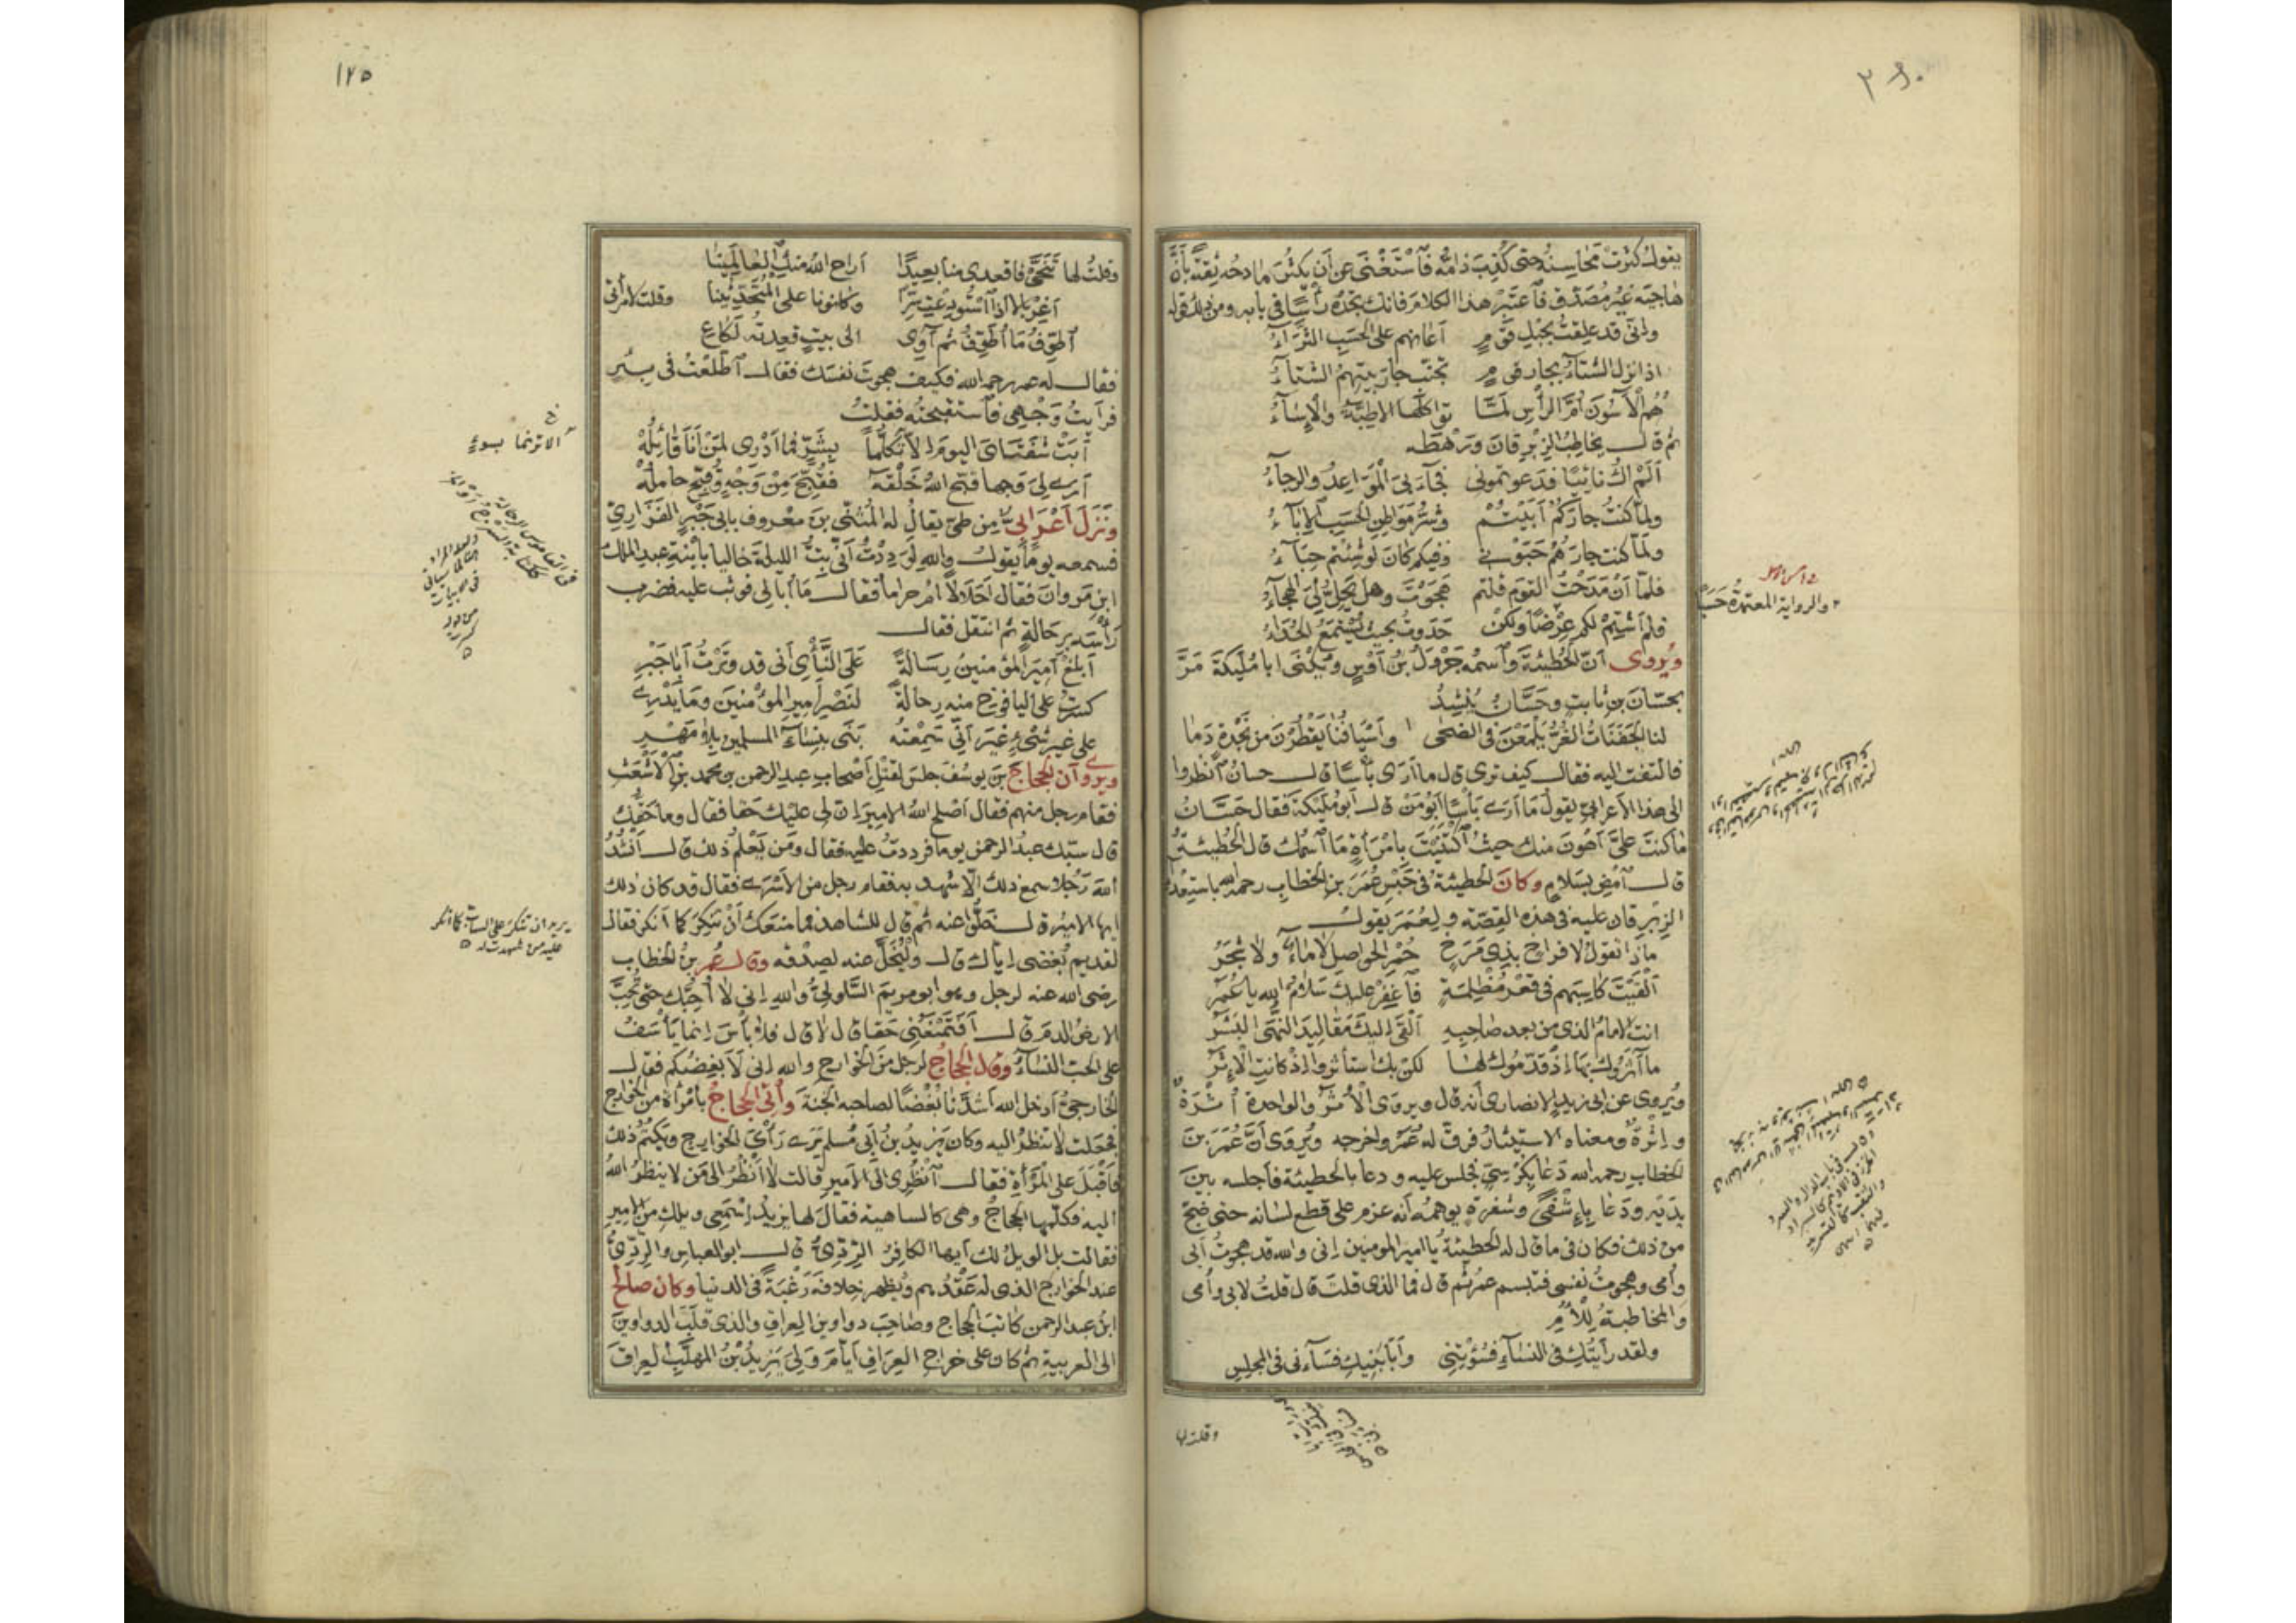 يقول كثرت محاسنه حتى كذب ذامه فاستغنى عن أن يكثر مادحه ثقة بأن
هاجيه غير مصدق فاعتبر هذا الكلام فانك تجده رأسا في بابه ومن ذلك قوله
وانى قد علقت بحبل قوم اعانهم على الحسب الثراء
اذا نزل الشتاء بجار قوم تجنب جار بيتهم الشتاء
هم الآسون أم الرأس لما تواكلها الاطبة والإساء
ثم قال يخاطب الزبرقان ورهطه
ألم اك نائيا فدعوتمونى فجاء بى المواعد والرجاء
ولما كنت جاركم أبيتم وشر مواطن الحسب الاباء
ولما كنت جارهم حبونى وفيكم كان لو شئتم حباء
فلما أن مدحت القوم قلتم هجوت وهل يحل لى الهجاء
فلم أشتم لكم عرضا ولكن حدوت بحيث يستمع الحداء
ويروى أن الحطيئة واسمه جرول بن أوس ويكنى ابا مليكة مر
بحسان بن ثابت وحسان ينشد
لنا الجفنات الغر يلمعن فى الضحى وأسيافنا يقطرن من نجدة دما
فالتفت اليه فقال كيف ترى قال ما أرى بأسا قال حسان انظروا
الى هذا الأعرابى يقول ما أرى بأسا أبو من قال أبو مليكة فقال حسان
ما كنت على أهون منك حيث اكتنيت بامرأة ما اسمك قال الحطيئة
قال امض بسلام وكان الحطيئة فى حبس عمر بن الخطاب رحمه الله باستعداء
الزبرقان عليه فى هذه القصة ولعمر يقول
ماذا تقول لافراخ بذى مرخ حمر الحواصل لا ماء ولا شجر
ألقيت كاسبهم فى قعر مظلمة فاغفر عليك سلام الله يا عمر
انت الامام الذى من بعد صاحبه ألقى اليك مقاليد النهى البشر
ما آثروك بها اذ قدموك لها لكن بك استأثروا اذ كانت الإثر
ويروى عن ابى زيد الانصارى أنه قال ويروى الأثر والواحدة أثرة
وإثرة ومعناه الاستيثار فرق له عمر واخرجه ويروى أن عمر بن
الخطاب رحمه الله دعا بكرسى فجلس عليه ودعا بالحطيئة فأجلسه بين
يديه ودعا بإشفى وشفرة يوهمه أنه عزم على قطع لسانه حتى ضج
من ذلك فكان فى ما قال له الحطيئة يا امير المومنين إنى والله قد هجوت أبى
وأمى وهجوت نفسى فتبسم عمر ثم قال فما الذى قلت قال قلت لابى وأمى
والمخاطبة للأم
ولقد رأيتك فى النساء فسؤتنى وأبا بنيك فساءنى فى المجلس
وقلت لها
والرواية المعتمدة
١٢٥
وقلت لها تنحى فاقعدى منا بعيدا اراح الله منك العالمينا
أغربالا اذا استودعت سرا وكانونا على المتحدثينا وقلت لامرأتى
أطوف ما أطوف ثم آوى الى بيت قعيدته لكاع
فقال له عمر رحمه الله فكيف هجوت نفسك فقال اطلعت فى بئر
فرأيت وجهى فاستقبحته فقلت
أبت شفتاى اليوم الا تكلما بشر فما أدرى لمن أنا قائله
أرى لى وجها قبح الله خلقه فقبح من وجه وقبح حامله
ونزل اعرابى من طى يقال له المثنى بن معروف بابى جبر الفزارى
فسمعه يوما يقول والله لوددت أنى بت الليلة خاليا بابنة عبد الملك
ابن مروان فقال أحلالا أم حراما فقال ما أبالى فوثب عليه فضرب
رأسه برحالة ثم انتقل فقال
أبلغ أمير المؤمنين رسالة على النأى أنى قد وترت أبا جبر
كسرت على اليافوخ منه رحالة لنصر أمير المؤمنين وما يدرى
على غير شىء غير أنى سمعته بنى بنساء المسلمين بلا مهر
ويروى أن الحجاج بن يوسف جلس لقتل أصحاب عبد الرحمن بن محمد بن الأشعث
فقام رجل منهم فقال أصلح الله الامير ان لى عليك حقا فقال وما حقك
قال سبك عبد الرحمن يوما فرددت عليه فقال ومن يعلم ذلك قال أنشد
الله رجلا سمع ذلك الا شهد به فقام رجل من الأسرى فقال قد كان ذلك
ايها الامير قال خلوا عنه ثم قال للشاهد فما منعك أن تنكر كما أنكر فقال
لقديم بغضى اياك قال وليخل عنه لصدقه وقال عمر بن الخطاب
رضى الله عنه لرجل وهو ابو مريم السلولى والله إنى لا أحبك حتى تحب
الارض الدم قال أفتمنعنى حقا قال لا قال فلا بأس إنما يأسف
على الحب النساء وقال الحجاج لرجل من الخوارج والله إنى لأبغضكم فقال
الخارجى أدخل الله أشدنا بغضا لصاحبه الجنة وأتى الحجاج بامرأة من الخوارج
فجعلت لا تنظر اليه وكان يزيد بن أبى مسلم يرى رأى الخوارج ويكتم ذلك
فأقبل على المرأة فقال انظرى الى الأمير قالت لا أنظر الى من لا ينظر الله
اليه فكلمها الحجاج وهى كالساهية فقال لها يزيد اسمعى ويلك من الامير
فقالت بل الويل لك أيها الكافر الردى قال ابو العباس والردى
عند الخوارج الذى له عقدهم ويظهر خلافه رغبة فى الدنيا وكان صالح
ابن عبد الرحمن كاتب الحجاج وصاحب دواوين العراق والذى قلب الدواوين
الى العربية ثم كان على خراج العراق أيام ولى يزيد بن المهلب العراق
يريد ان تنكر على الساب كما انكر
عليه من شهدت له